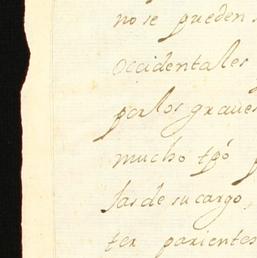 no se pueden
occidentales
por los graves
mucho tpõ
las de su cargo,
ter parientes